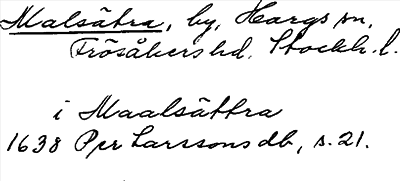 Malsätra, by, Hargs sn,
Frösåkers hd. Stockh. l.
i Maalsättra
1638 Per Larssons db, s. 21.